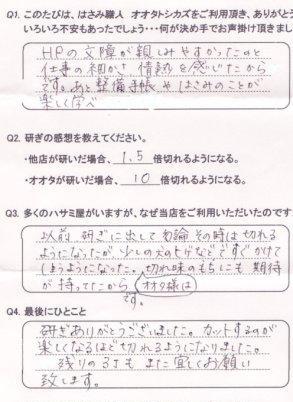 Q1. このたびは、はさみ職人 オオタトシカズをご利用頂き、ありがとう
いろいろ不安もあったでしょう・・・何が決め手でお声掛け頂きまし
HPの文章が親しみやすかったのと
仕事の細かさ 情熱を感じたから
です。あと整備手帳やはさみのことが
楽しく学べ
Q2. 研ぎの感想を教えてください。
・他店が研いだ場合、 1.5 倍切れるようになる。
・オオタが研いだ場合、 10 倍切れるようになる。
Q3. 多くのハサミ屋がいますが、なぜ当店をご利用いただいたのです
以前 研ぎに出して勿論その時は切れる
ようになったが 少しの犬のヒゲなどですぐかけて
しまうようになった。切れ味のもちにも 期待
が持ってたから オオタ様は
です。
Q4. 最後にひとこと
研ぎありがとうございました。カットするのが
楽しくなるほど切れるようになりました。
残りの3丁も また宜しくお願い
致します。